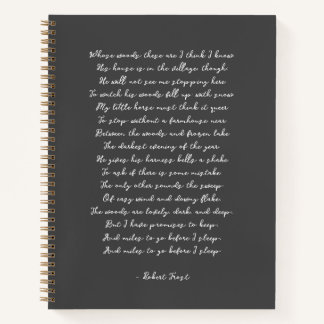 Whose woods these are I think I know
His house is in the village though
He will not see me stopping here
To watch his woods fill up with snow
My little horse must think it queer
To stop without a farmhouse near
Between the woods and frozen lake
The darkest evening of the year
He gives his harness bells a shake
To ask if there is some mistake
The only other sounds the sweep
Of easy wind and downy flake.
The woods are lovely, dark and deep.
But I have promises to keep,
And miles to go before I sleep,
And miles to go before I sleep.
- Robert Frost